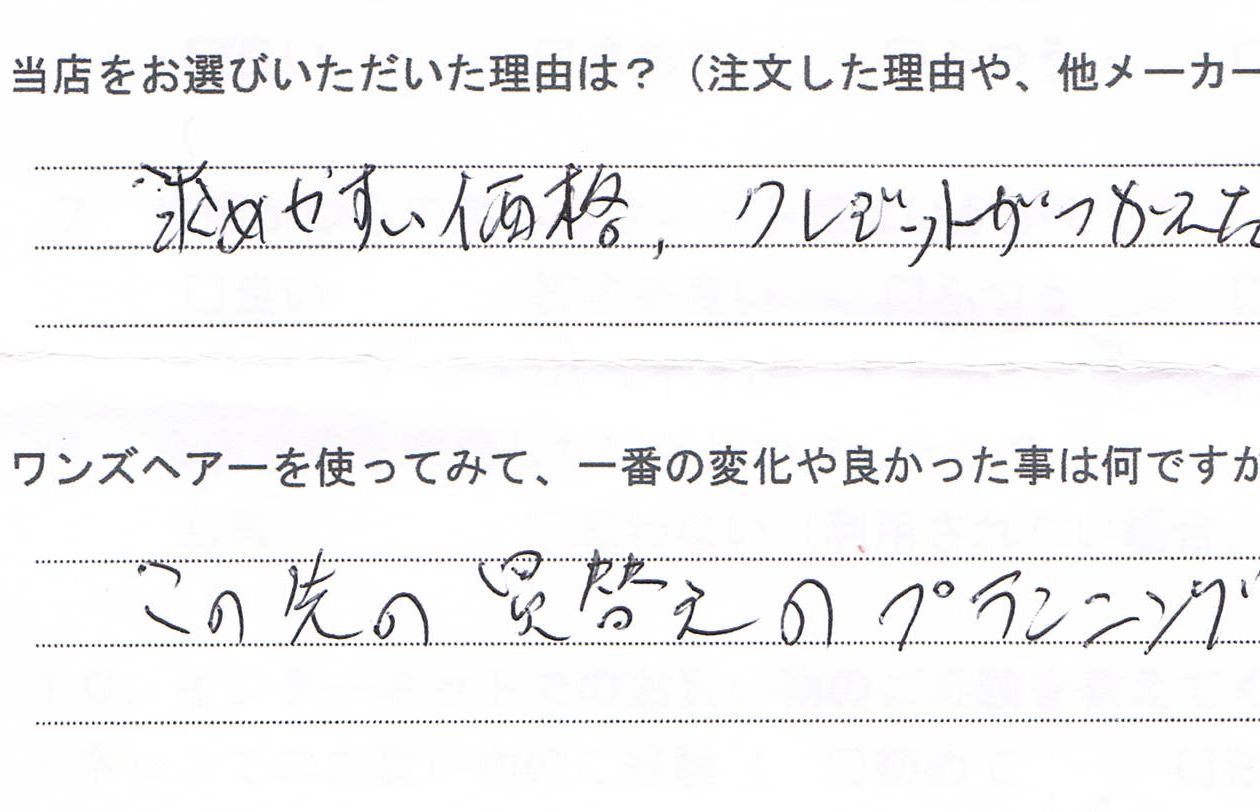 当店をお選びいただいた理由は？（注文した理由や、他メーカー
求めやすい価格，クレジットがつかえた
ワンズヘアーを使ってみて、一番の変化や良かった事は何ですか
この先の買替えのプランニング